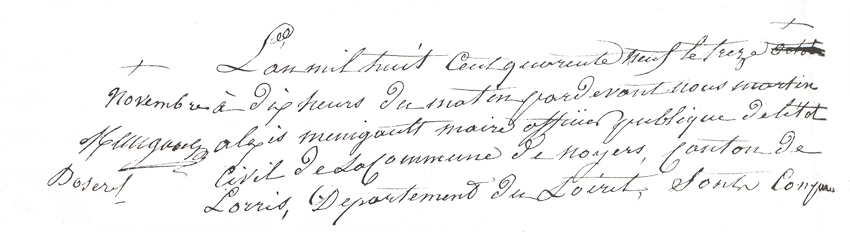 L'an mil huit Cent quarente neuf le treze
Novembre à dix heurs du matin pardevant nous martin
alexis menigault maire officier publique de létat
Civil de la Commune de noyers, Canton de
Lorris, Departement du Loiret, Sont Compar